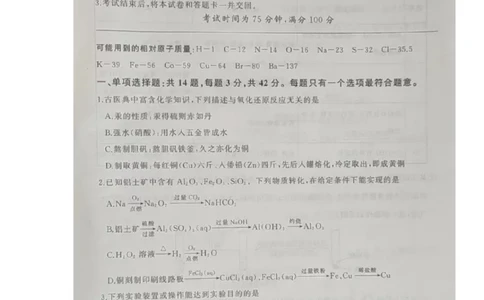 3.考试结束后,将本试卷和答题卡一并交回。
考试时间为75分钟,满分100分
可能用到的相对原子质量:H-1 C-12 N-14 O-16 Na-23 S-32 Cl-35.5
K-39 Fe-56 Co-59 Cu-64 Br-80 Ba-137
一、单项选择题:共14题,每题3分,共42分。每题只有一个选项最符合题意。
1.古医典中富含化学知识,下列描述与氧化还原反应无关的是
A.汞的性质:汞得硫则赤如丹
B.强水(硝酸):用水入五金皆成水
C.熬制胆矾:熬胆矾铁釜,久之亦化为铜
D.制取黄铜:每红铜(Cu)六斤,入倭铅(Zn)四斤,先后入罐熔化,冷定取出,即成黄铜
2.已知铝土矿中含有Al₂O₃、Fe₂O₃、SiO₂。下列物质转化,在给定条件下能实现的是
A.Na O₂ 点燃 Na₂O₂ 过量CO₂ NaHCO₃
B.铝土矿 硫酸 过滤 Al₂(SO₄)₃(aq) 过量NaOH Al(OH)₃ 灼烧 Al₂O₃
C.H₂O₂溶液 △ H₂ O₂ 点燃 H₂O
D.铜刻制印刷线路板 FeCl₃(aq) CuCl₂(aq)、FeCl₂(aq) 过量铁粉 Fe、Cu 稀盐酸 Cu
3.下列实验装置或操作能达到实验目的的是